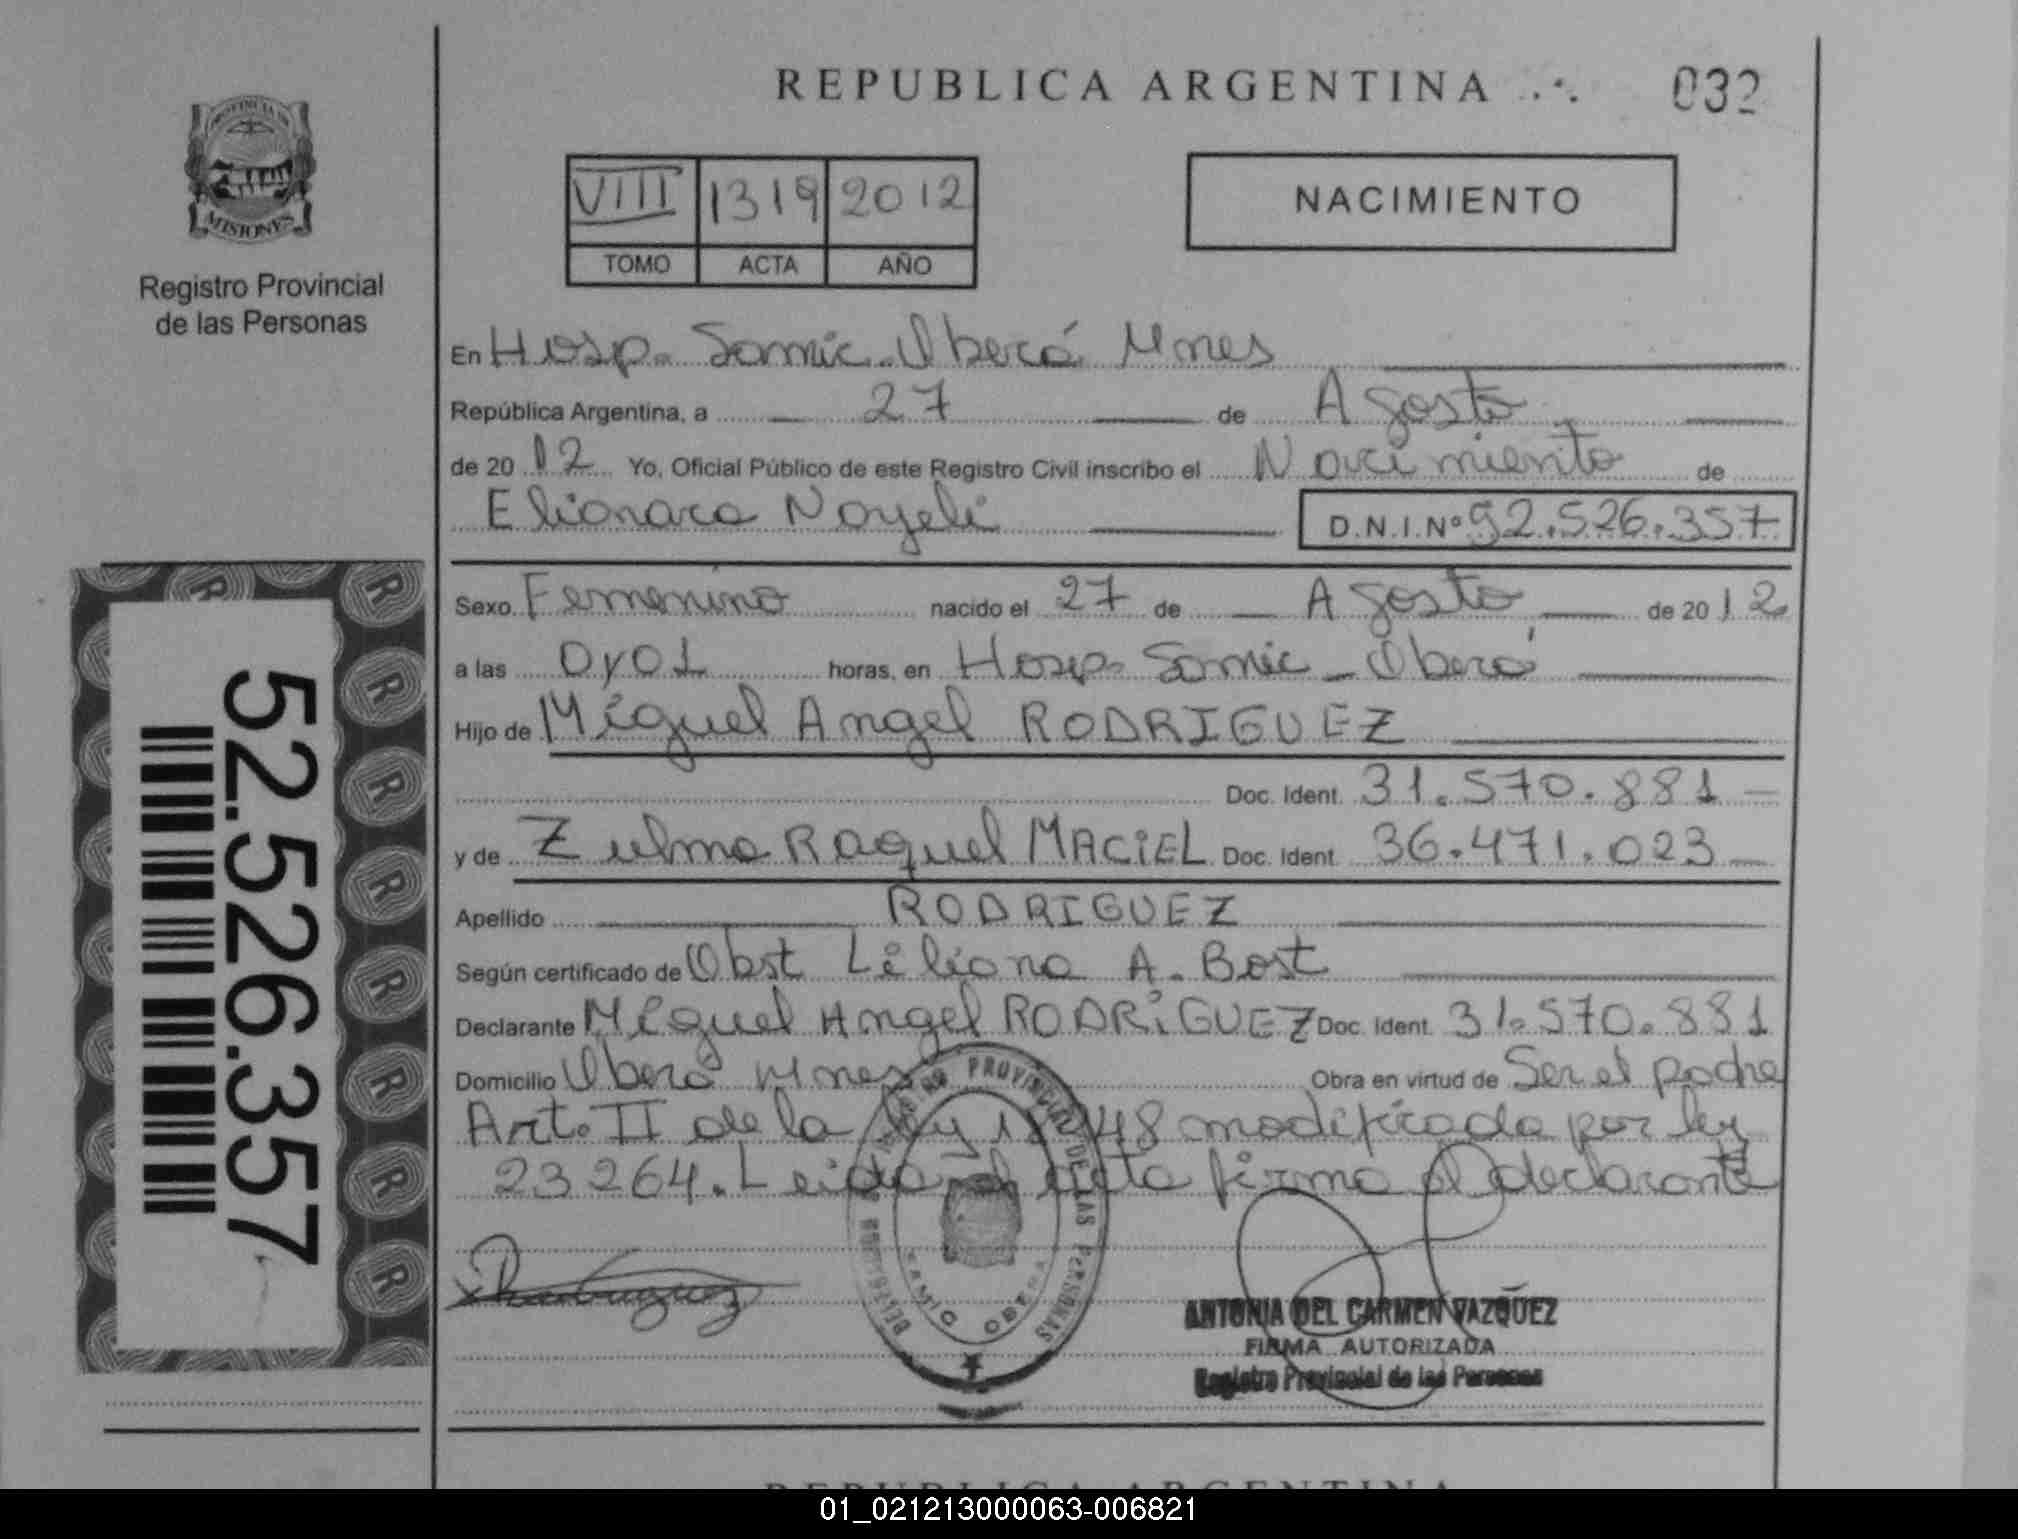 REPUBLICA ARGENTINA
032
PROVINCIA DE
MISIONES
Registro Provincial
de las Personas
VIII 1319 2012
TOMO ACTA AÑO
NACIMIENTO
En Hosp. Samic. Oberá Mnes
República Argentina, a 27 de Agosto
de 2012 Yo, Oficial Público de este Registro Civil inscribo el Nacimiento de
Elionara Nayeli D.N.I.Nº 52.526.357
Sexo Femenino nacido el 27 de Agosto de 2012
a las 0y01 horas, en Hosp. Samic - Oberá
Hijo de Miguel Angel RODRIGUEZ
Doc. Ident. 31.570.881
y de Zulma Raquel MACIEL Doc. Ident. 36.471.023
Apellido RODRIGUEZ
Según certificado de Obst Liliana A. Bost
Declarante Miguel Angel RODRIGUEZ Doc. Ident. 31.570.881
Domicilio Oberá Mnes Obra en virtud de Ser el padre
Art. II de la ley 18248 modificada por ley
23264. Leida el acta firma el declarante
52.526.357
REGISTRO PROVINCIAL DE LAS PERSONAS
SAMIC OBERA
ANTONIA DEL CARMEN VAZQUEZ
FIRMA AUTORIZADA
Registro Provincial de las Personas
REPUBLICA ARGENTINA
01_021213000063-006821